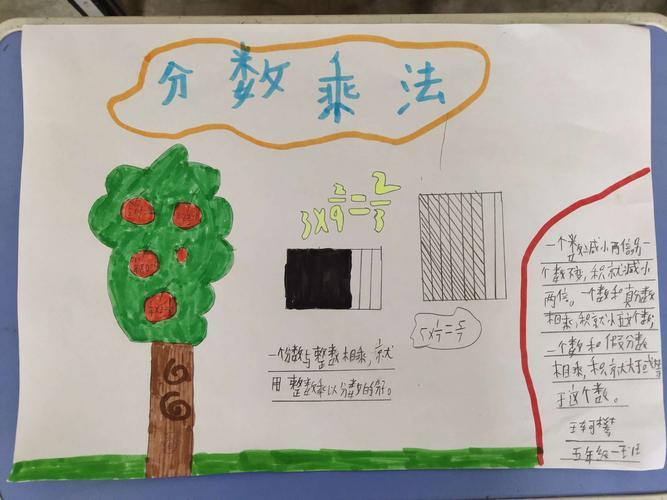 分数乘法
3×2/9=2/3
5×1/7=5/7
一个分数与整数相乘,就
用整数乘以分数的分
一个数减小两倍,另一
个数不变,积就减小
两倍。一个数和真分数
相乘,积就小这个数,
一个数和假分数
相乘,积就大于或等
于这个数。
五年级一班